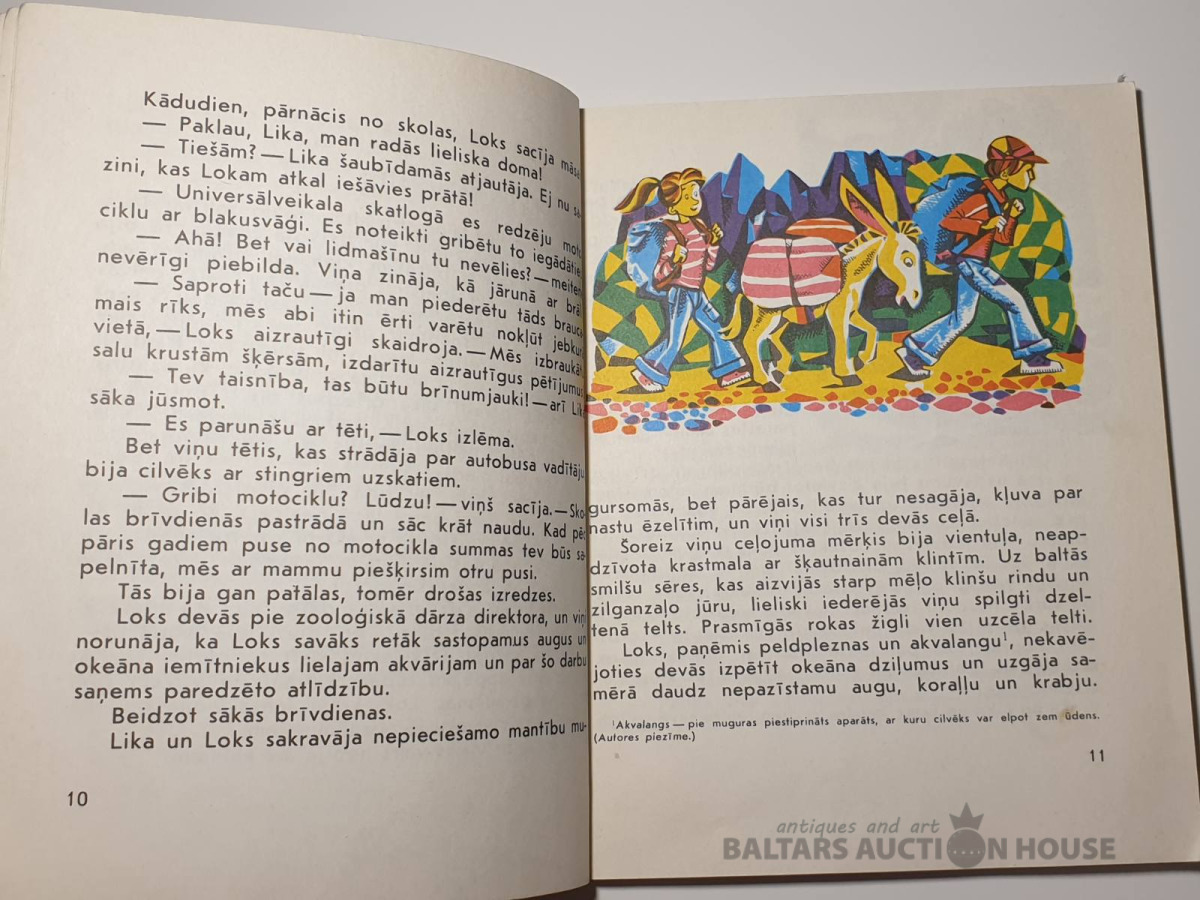 Kādudien, pārnācis no skolas, Loks sacīja
— Paklau, Lika, man radās lieliska doma!
— Tiešām? — Lika šaubīdamās atjautāja. Ej nu
zini, kas Lokam atkal iešāvies prātā!
— Universālveikala skatlogā es redzēju
ciklu ar blakusvāģi. Es noteikti gribētu to
— Ahā! Bet vai lidmašīnu tu nevēlies? —
nevērīgi piebilda. Viņa zināja, kā jārunā ar
— Saproti taču — ja man piederētu tāds
mais rīks, mēs abi itin ērti varētu nokļūt
vietā, — Loks aizrautīgi skaidroja. — Mēs
salu krustām šķērsām, izdarītu aizrautīgus
— Tev taisnība, tas būtu brīnumjauki! — arī
sāka jūsmot.
— Es parunāšu ar tēti, — Loks izlēma.
Bet viņu tētis, kas strādāja par autobusa vadītāju,
bija cilvēks ar stingriem uzskatiem.
— Gribi motociklu? Lūdzu! — viņš sacīja. — Sko-
las brīvdienās pastrādā un sāc krāt naudu. Kad pēc
pāris gadiem puse no motocikla summas tev būs sa-
pelnīta, mēs ar mammu piešķirsim otru pusi.
Tās bija gan patālas, tomēr drošas izredzes.
Loks devās pie zooloģiskā dārza direktora, un viņi
norunāja, ka Loks savāks retāk sastopamus augus un
okeāna iemītniekus lielajam akvārijam un par šo darbu
saņems paredzēto atlīdzību.
Beidzot sākās brīvdienas.
Lika un Loks sakravāja nepieciešamo mantību mu-
10
gursomās, bet pārējais, kas tur nesagāja, kļuva par
nastu ēzelītim, un viņi visi trīs devās ceļā.
Šoreiz viņu ceļojuma mērķis bija vientuļa, neap-
dzīvota krastmala ar šķautnainām klintīm. Uz baltās
smilšu sēres, kas aizvijās starp mēļo klinšu rindu un
zilganzaļo jūru, lieliski iederējās viņu spilgti dzel-
tenā telts. Prasmīgās rokas žigli vien uzcēla telti.
Loks, paņēmis peldpleznas un akvalangu¹, nekavē-
joties devās izpētīt okeāna dziļumus un uzgāja sa-
mērā daudz nepazīstamu augu, koraļļu un krabju.
¹Akvalangs — pie muguras piestiprināts aparāts, ar kuru cilvēks var elpot zem ūdens.
(Autores piezīme.)
11
antiques and art
BALTARS AUCTION HOUSE